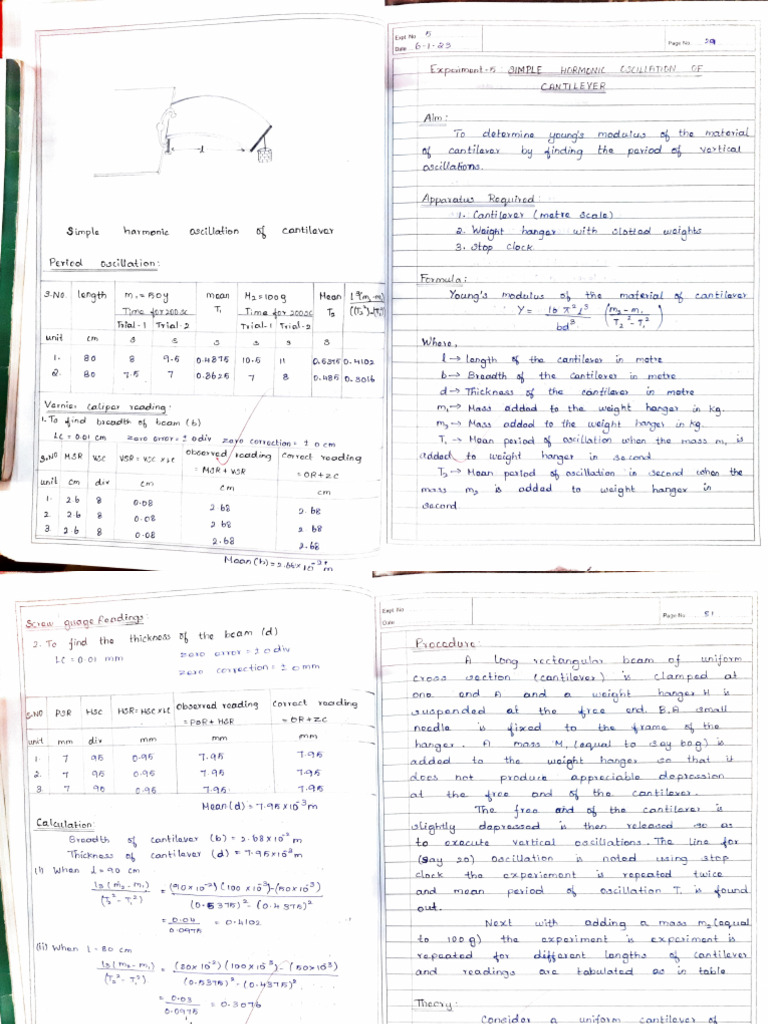 Simple harmonic oscillation of cantilever
Period oscillation:
S.No. length m₁=50g mean M₂=100g Mean
Time for 20 osc T₁ Time for 20 osc T₂
Trial-1 Trial-2 Trial-1 Trial-2
unit cm s s s s s s
1. 80 8 9.5 0.4875 10.5 11 0.5375 0.4102
2. 80 7.5 7 0.3625 7 8 0.485 0.3016
Vernier caliper reading:
1. To find breadth of beam (b)
LC = 0.01 cm zero error = ±0 div zero correction = ±0 cm
S.NO MSR VSC VSR = VSC x LC observed reading correct reading
= MSR + VSR = OR + ZC
unit cm div cm cm cm
1. 2.6 8 0.08 2.68 2.68
2. 2.6 8 0.08 2.68 2.68
3. 2.6 8 0.08 2.68 2.68
Expt. No 5
Date 6-1-23
Page No 29
Experiment-5: SIMPLE HORMONIC OSCILLATION OF
CANTILEVER
Aim:
To determine young's modulus of the material
of cantilever by finding the period of vertical
oscillations.
Apparatus Required:
1. Cantilever (metre scale)
2. Weight hanger with slotted weights
3. Stop clock
Formula:
Young's modulus of the material of cantilever
Y = 16 π² l³ / bd³ (m₂-m₁ / T₂²-T₁²)
Where,
l → length of the cantilever in metre
b → Breadth of the cantilever in metre
d → Thickness of the cantilever in metre
m₁ → Mass added to the weight hanger in kg.
m₂ → Mass added to the weight hanger in kg.
T₁ → Mean period of oscillation when the mass m₁ is
added to weight hanger in second.
T₂ → Mean period of oscillation in second when the
mass m₂ is added to weight hanger in
second.
Screw guage Readings:
2. To find the thickness of the beam (d)
LC = 0.01 mm zero error = ±0 div
zero correction = ±0 mm
S.NO PSR HSC HSR = HSC x LC Observed reading Correct reading
= POR + HSR = OR + ZC
unit mm div mm mm mm
1. 7 95 0.95 7.95 7.95
2. 7 95 0.95 7.95 7.95
3 7 90 0.95 7.95 7.95
Mean (d) = 7.95 x 10⁻³ m
Calculation:
Breadth of cantilever (b) = 2.68 x 10⁻² m
Thickness of cantilever (d) = 7.95 x 10⁻³ m
(i) When l = 90 cm
l³(m₂-m₁) / (T₂²-T₁²) = (90 x 10⁻²) (100 x 10⁻³) - (50 x 10⁻³) / (0.5375)² - (0.4375)²
= 0.04 / 0.0975 = 0.4102
(ii) When l - 80 cm
l³(m₂-m₁) / (T₂²-T₁²) = (80 x 10⁻²) (100 x 10⁻³) - (50 x 10⁻³) / (0.5375)² - (0.4375)²
= 0.03 / 0.0975 = 0.3076
Expt. No
Date
Page No 51
Procedure:
A long rectangular beam of uniform
cross section (cantilever) is clamped at
one end A and a weight hanger H is
suspended at the free end. B. A small
needle is fixed to the frame of the
hanger. A mass M₁ (equal to say 50g) is
added to the weight hanger so that it
does not produce appreciable depression
at the free end of the cantilever.
The free end of the cantilever is
slightly depressed is then released so as
to execute vertical oscillations. The line for
(say 20) oscillation is noted using stop
clock the experiement is repeated twice
and mean period of oscillation T₁ is found
out.
Next with adding a mass m₂ (equal
to 100 g) the experiment is experiment is
repeated for different lengths of cantilever
and readings are tabulated as in table
Theory:
Consider a uniform cantilever of